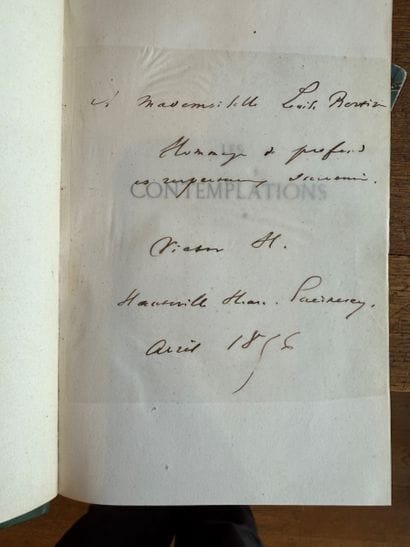 à mademoiselle Louise Bertin
Hommage de profond
LES
et respectueux souvenir.
CONTEMPLATIONS
Victor H.
Hauteville House. Guernesey.
Avril 1856